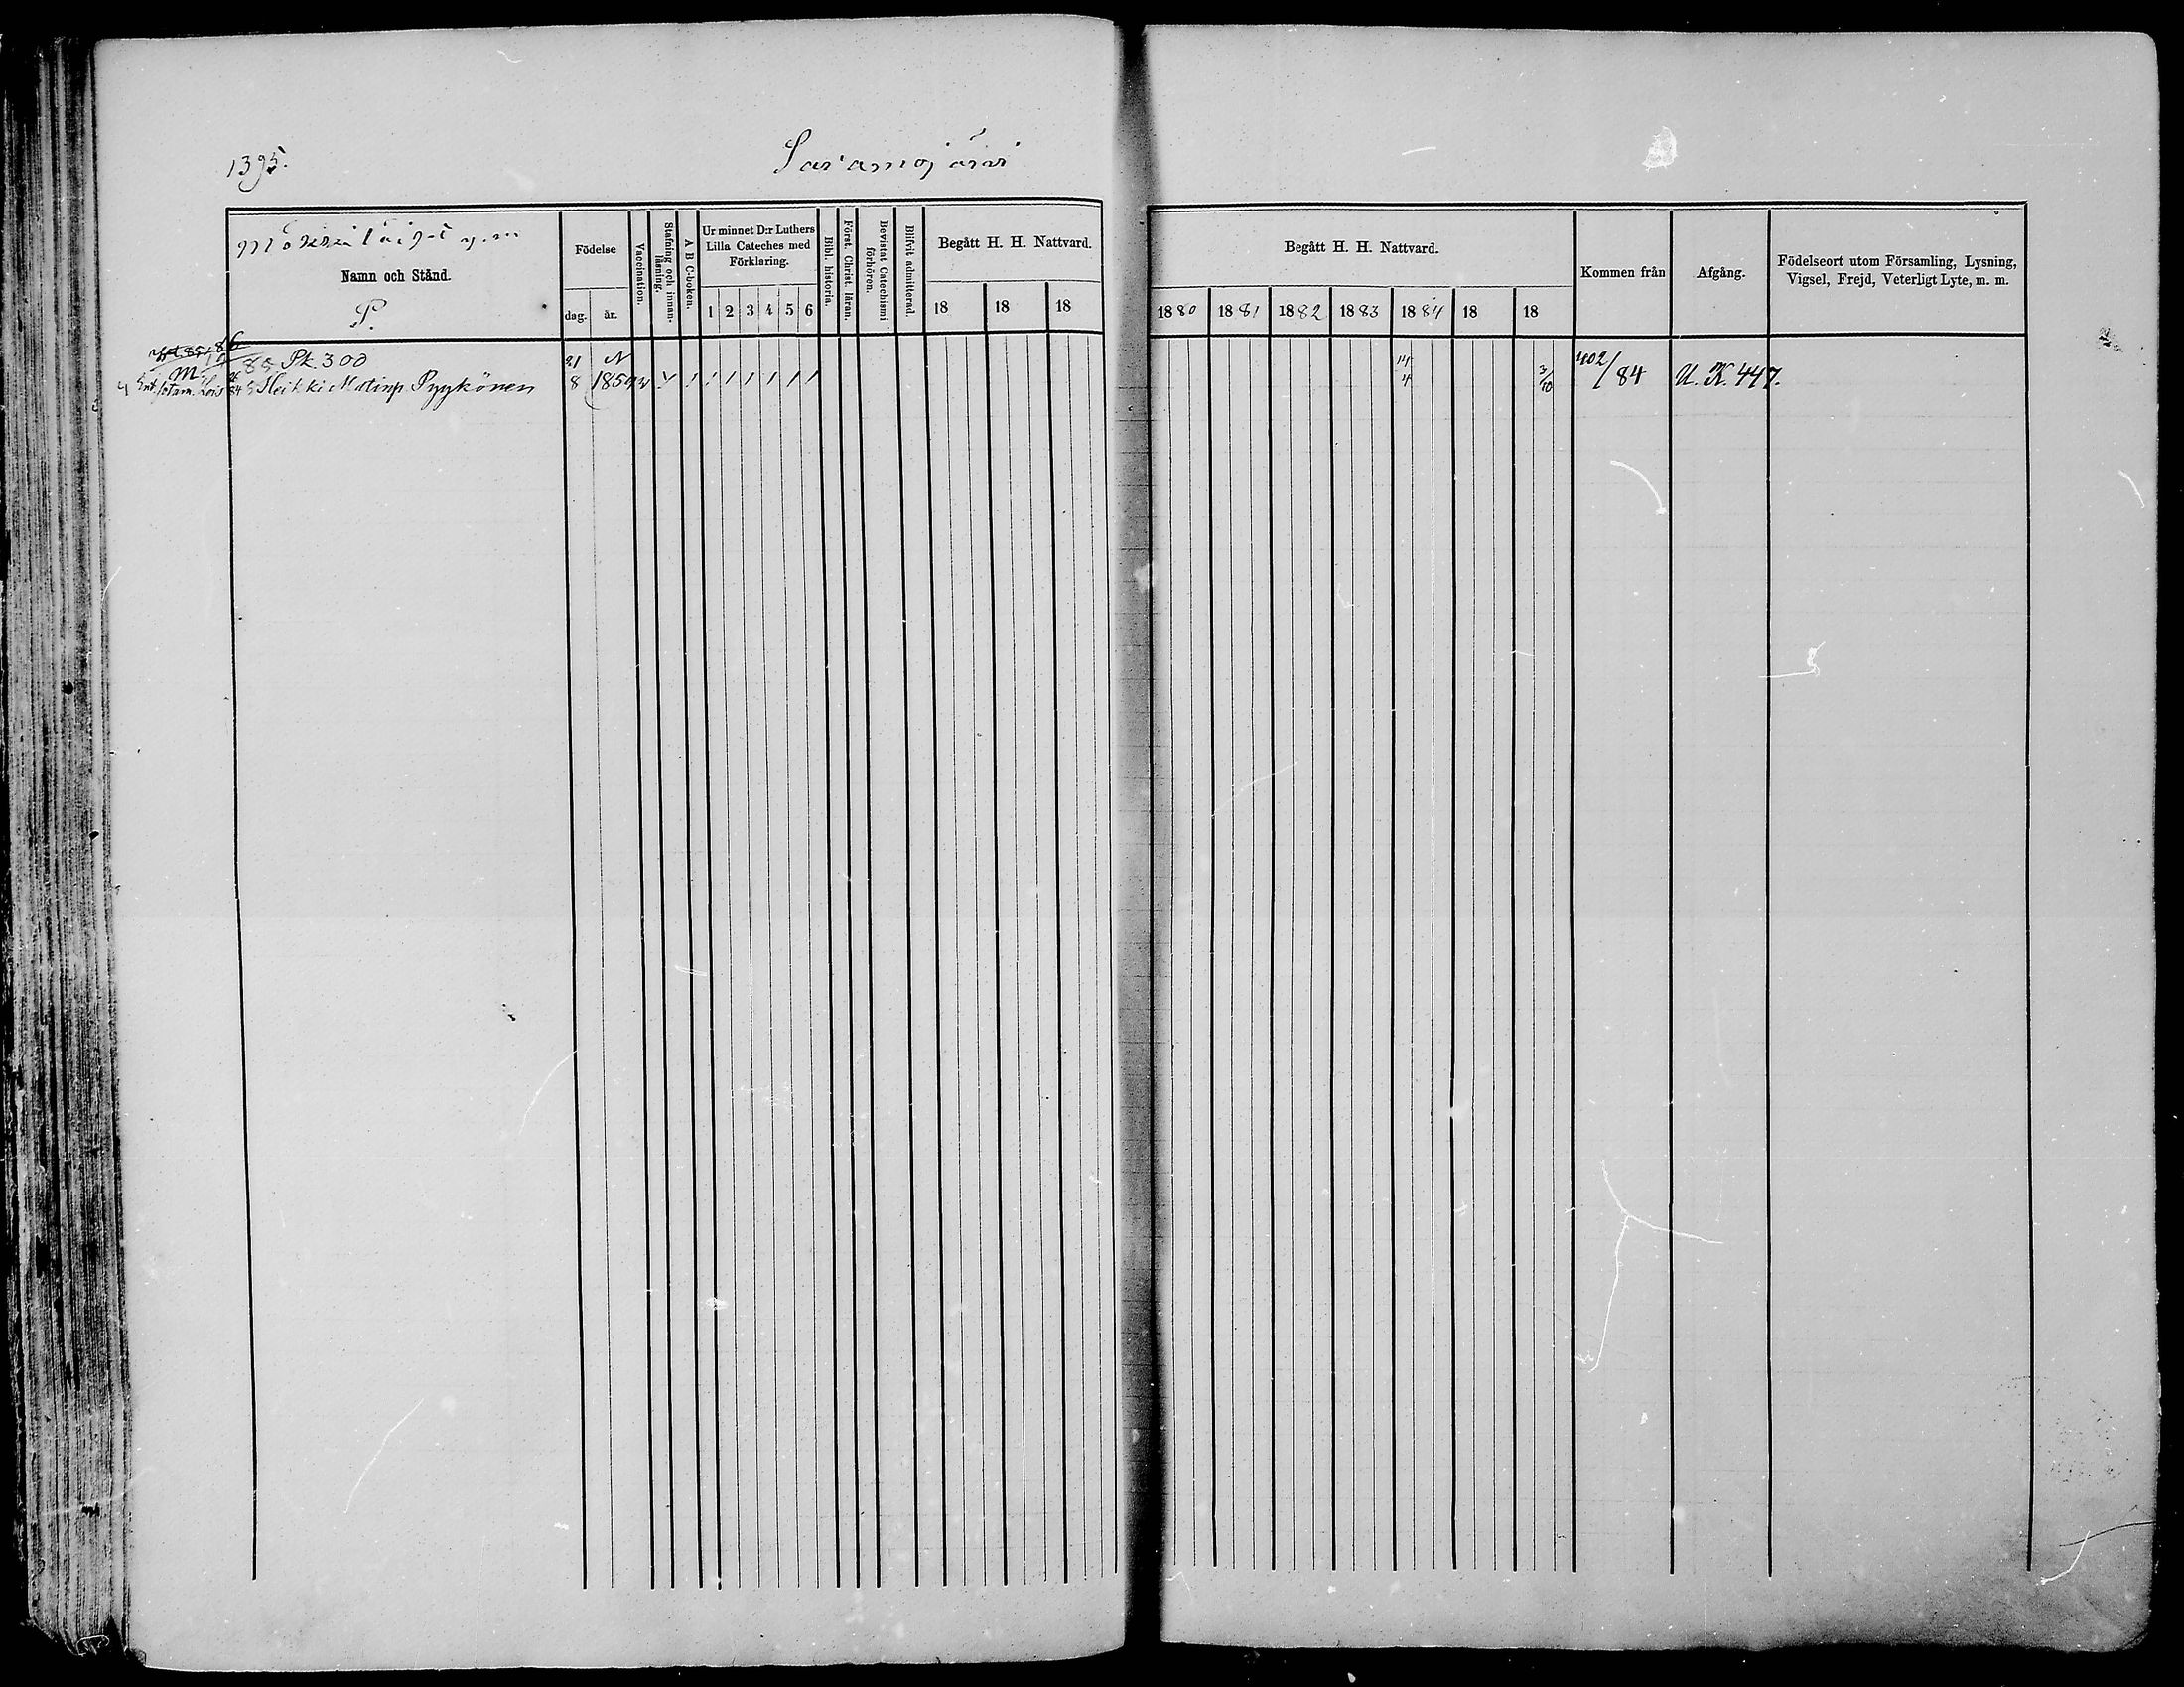 1395.
Saramojärvi
Namn och Stånd.
P.
Födelse
dag.
år.
Vaccination.
Stafning och innan-
läsning.
A B C-boken.
Ur minnet D:r Luthers
Lilla Cateches med
Förklaring.
1 2 3 4 5 6
Bibl. historia.
Först. Christ. läran.
Bevistat Catechismi
förhören.
Blifvit admitterad.
Begått H. H. Nattvard.
18 18 18
Begått H. H. Nattvard.
1880 1881 1882 1883 1884 18 18
Kommen från
Afgång.
Födelseort utom Församling, Lysning,
Vigsel, Frejd, Veterligt Lyte, m. m.
86
M. 85 Pk. 300 21
Heikki Matinp. Pyykönen 8 1859
11/4 3/10 402/84 U. K. 447.